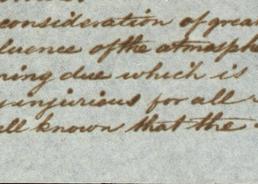 consideration of grea
fluence of the atmosphe
ning due which is
injurious for all
ll known that the